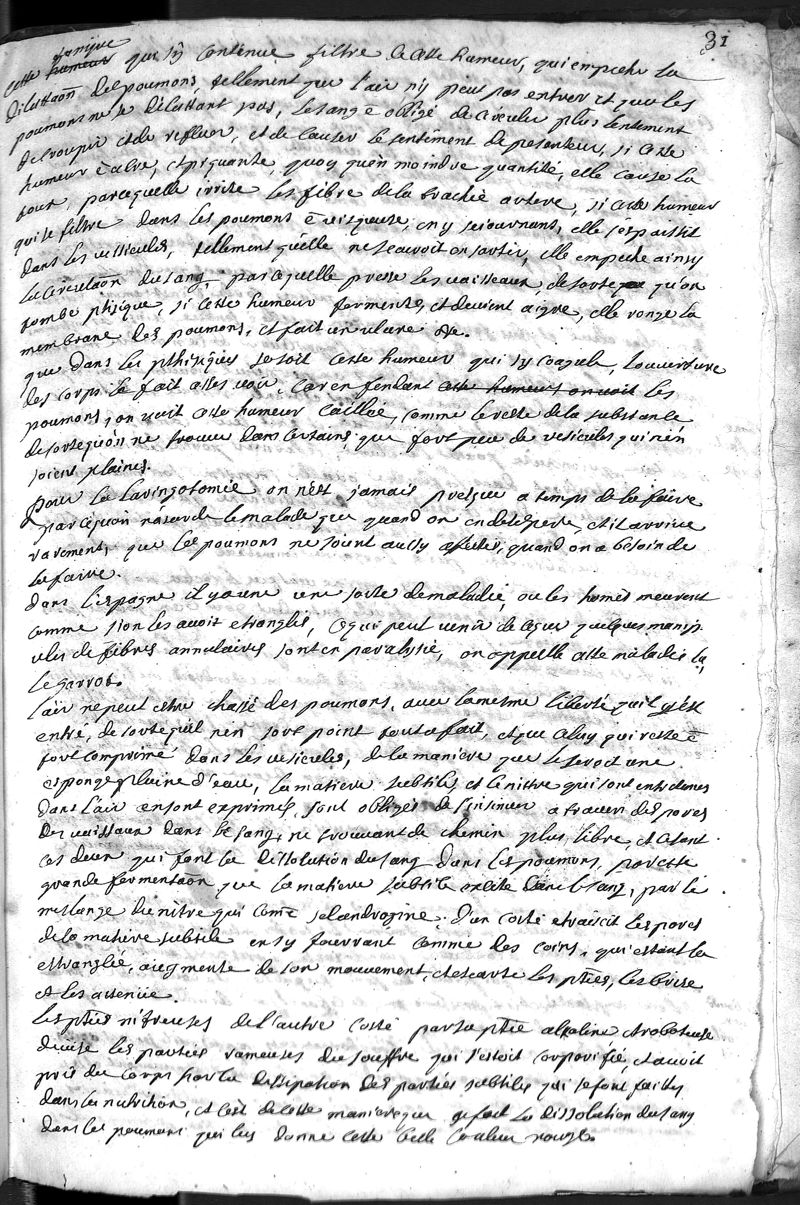 31
tunique
cette humeur qui s'y contenue filtre cette humeur, qui empeche la
dilataon des poumons, tellement que l'air n'y peut pas entrer et que les
poumons ne se dilattant pas, le sang e obligé de circuler plus lentement
de croupir et de refluer, et de causer le sentiment de pesanteur, si cette
humeur e acre, et piquante, quoy qu'en moindre quantité, elle cause la
toux, parcequelle irrite les fibre de la trachée artere, si cette humeur
qui se filtre dans les poumons e visqueuse, en y sejournant, elle s'espaissit
dans les vesicules, tellement qu'elle ne scauroit en sortir, elle empeche ainsy
la circulaon du sang, parcequelle presse les vaisseaux, de sorte qu'on
tombe phisique, si cette humeur fermente, et devient aigre, elle ronge la
membrane des poumons, et fait un ulcere &c.
que dans les phisiques se soit cette humeur qui s'y coagule, l'ouverture
des corps le fait asses voir, car en fendant cette humeur on voit les
poumons, on voit cette humeur caillée, comme le reste de la substance
de sorte qu'on ne trouve dans certains, que fort peu de vesicules qui n'en
soient plaines.
Pour la laringotomie on n'est jamais presque a temps de la faire
parcequon n'asarde le malade que quand on en desespere, et il arrive
rarement, que les poumons ne soient aussy affectes, quand on a besoin de
la faire.
dans l'espagne il y a une sorte de maladie, ou les homes meurent
comme si on les avoit etranglés, ce qui peut venir de ce que quelques manip
ules de fibres annulaires sont en paralysie, on appelle cette maladie la,
le garrot.
l'air ne peut estre chassé des poumons, avec la mesme liberté qu'il y est
entré, de sorte quil n'en sort point tout a fait, et que celuy qui reste e
fort comprimé dans les vesicules, de la maniere que le seroit une
esponge plaine d'eau, la matiere subtile, et le nitre qui sont enfermes
dans l'air en sont exprimes, sont obligez de s'insinuer a travers des pores
des vaisseaux dans le sang, ne trouvant de chemin plus libre, et ce sont
ces deux qui font la dissolution du sang dans les poumons, par cette
grande fermentaon que la matiere subtile excite dans le sang, par le
mellange du nitre qui come salandrogine, d'un costé etraissit les pores
de la matiere subtile en s'y fourrant comme des coins, qui estant la
estranglée, augmente de son mouvement, et escarte les pties, les brise
et les attenue.
les pties nitreuses de l'autre costé par sa ptie alkaline et raboteuse
divise les parties rameuses du souffre qui s'estoit corporifié, et avoit
pris du corps par la dissipation des parties subtiles qui se sont faites
dans la nutrition, et c'est de cette maniere que se fait la dissolution du sang
dans les poumons qui luy donne cette belle couleur rouge.